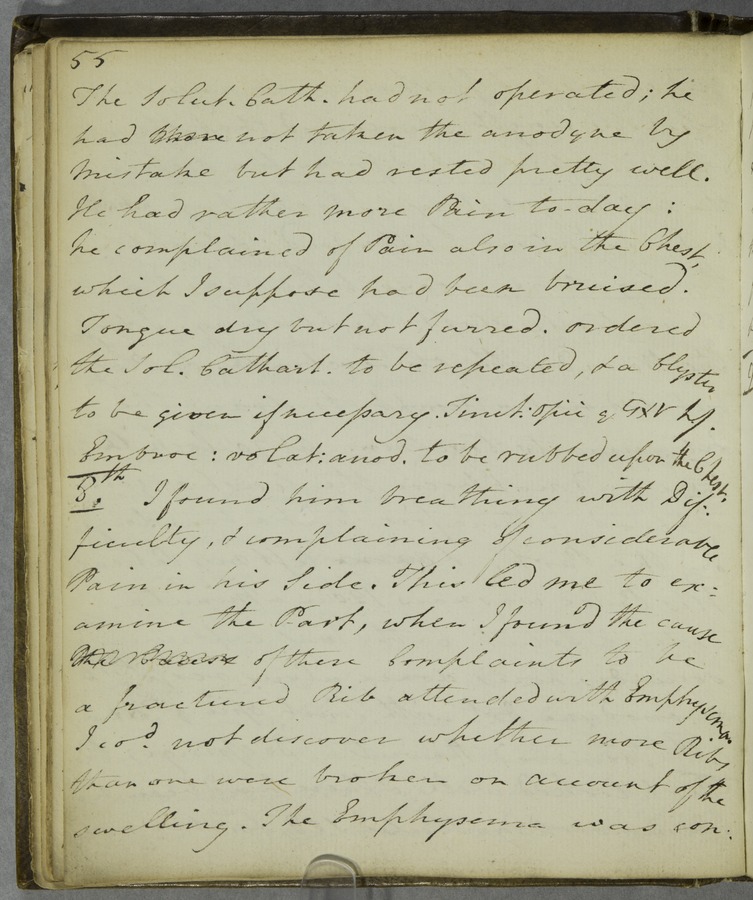 55
The Solut. Cath. had not operated; he
had not taken the anodyne by
mistake but had rested pretty well.
He had rather more Pain to-day:
he complained of Pain also in the Chest,
which I suppose had been bruised.
Tongue dry but not furred. ordered
the Sol. Cathart. to be repeated, & a Clyster
to be given if necessary. Tinct: opii g GXV hs.
Embroc: volat: anod. to be rubbed upon the Chest.
8.th I found him breathing with Dif-
ficulty, & complaining of considerable
Pain in his Side. This led me to ex:
amine the Part, when I found the cause
of these Complaints to be
a fractured Rib attended with Emphysema.
I cod. not discover whether more Ribs
than one were broken on account of the
swelling. The Emphysema was con: